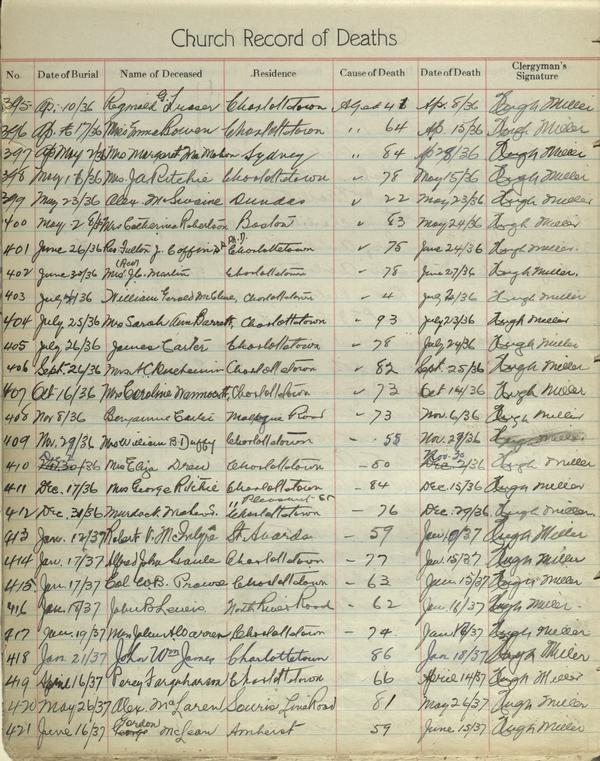 Church Record of Deaths
No. Date of Burial Name of Deceased Residence Cause of Death Date of Death Clergyman's Signature
395 Ap. 10/36 Reginald G. Charlottetown Aged 41 Ap. 8/36 Hugh Miller
396 Ap. 17/36 Miss Emma Bowen Charlottetown " 64 Ap. 15/36 Hugh Miller
397 May 2/36 Mrs Margaret Sydney " 84 Hugh Miller
398 May 18/36 Mrs J.A. Ritchie Charlottetown " 78 May 15/36 Hugh Miller
399 May 23/36 Alex. McSwaine Dundas " 22 May 23/36 Hugh Miller
400 May Mrs Catherine Robertson Boston " 83 May 24/36 Hugh Miller
401 June 26/36 Rev Fulton J. Coffin D.D. Ph.D. Charlottetown " 75 June 24/36 Hugh Miller.
402 June 30/36 Mrs J.C. Martin Charlottetown - 78 June 27/36 Hugh Miller.
403 July William Gerald Charlottetown - 4 July Hugh Miller
404 July 25/36 Mrs Sarah Ann Barrett, Charlottetown - 93 July 23/36 Hugh Miller
405 July 26/36 James Carter Charlottetown - 78 July 24/36 Hugh Miller
406 Sept. 26/36 Mrs H.C. Charlottetown - 82 Sept. 25/36 Hugh Miller
407 Oct 16/36 Mrs Caroline Charlottetown - 73 Oct 14/36 Hugh Miller
408 Nov 8/36 Benjamin Carter Malpeque Road - 73 Nov. 6/36 Hugh Miller
409 Nov. 29/36 Mrs William B. Duffy Charlottetown - 55 Nov. 29/36 Hugh Miller
410 Dec. Mrs Eliza Drew Charlottetown - 80 Nov. 30 Hugh Miller
411 Dec. 17/36 Mrs George Ritchie Charlottetown - 84 Dec. 15/36 Hugh Miller
11 Pleasant St
412 Dec. 31/36 Murdoch Charlottetown - 76 Dec. 29/36 Hugh Miller.
413 Jan. 12/37 Robert V. McIntyre St. Avards - 59 Jan. 10/37 Hugh Miller
414 Jan. 17/37 Alfred John Gaule Charlottetown - 77 Jan. 15/37 Hugh Miller
415 Jan. 17/37 Col. W.B. Prowse Charlottetown - 63 Jan. 15/37 Hugh Miller
416 Jan. 18/37 John B. Lewis North River Road - 62 Jan. 16/37 Hugh Miller.
417 Jan. 19/37 Mrs John A. Warren Charlottetown - 74 Jan Hugh Miller
418 Jan. 21/37 John Wm James Charlottetown 86 Jan. 18/37 Hugh Miller
419 April 16/37 Percy Farquharson Charlottetown 66 April 14/37 Hugh Miller
420 May 26/37 Alex. McLaren Souris Line Road 81 May 26/37 Hugh Miller
421 June 16/37 Gordon McLean Amherst 59 June 15/37 Hugh Miller